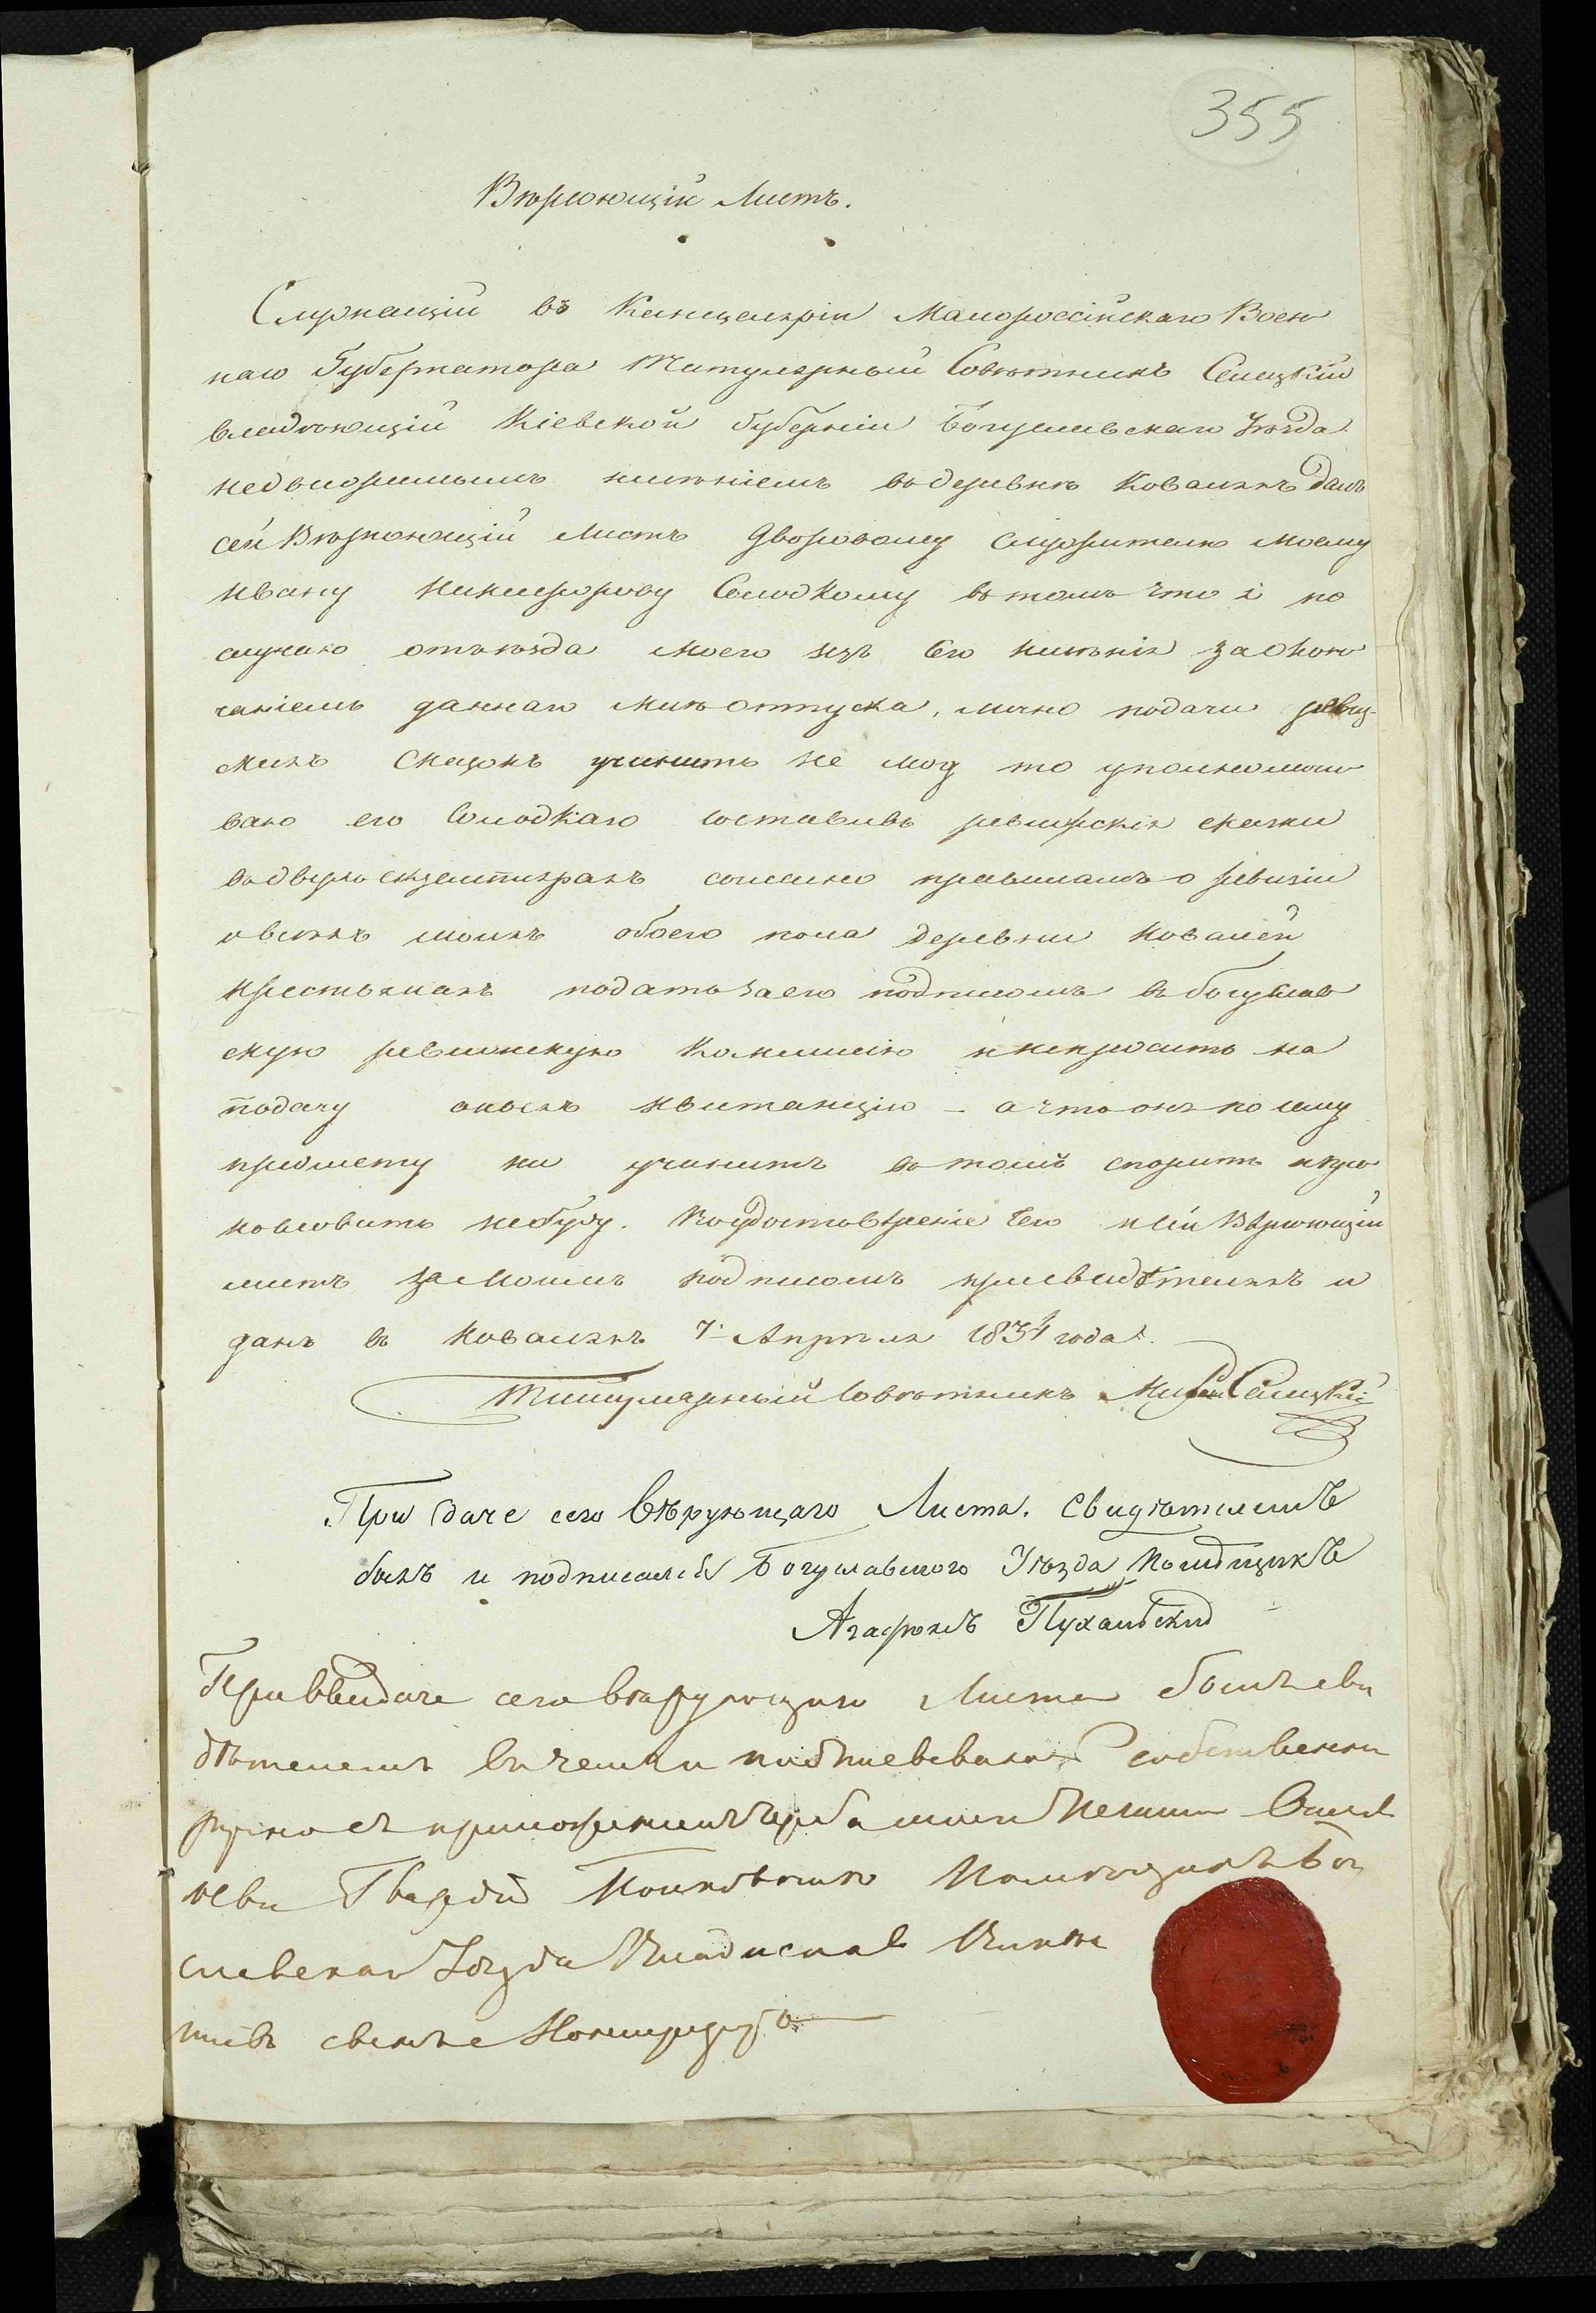 355
Вѣрющій Листъ.
Служащій въ Канцеляріи Малороссійскаго Воен
наго Губернатора Титулярный Совѣтникъ Селецкій
владѣющій Кіевской Губерніи Богуславскаго Уѣзда
недвижимымъ имѣніемъ въ деревнѣ Коваляхъ далъ
сей Вѣрющій Листъ дворовому служителю моему
Ивану Никифорову Солодкому въ томъ что я по
случаю отъѣзда моего изъ сего имѣнія за окон
чаніемъ даннаго мнѣ отпуска, лично подачи ревиз-
скихъ сказокъ учинить не могу то уполномочи
ваю его Солодкаго составивъ ревизскія сказки
въ двухъ экземплярахъ согласно правиламъ о ревизіи
о всѣхъ моихъ обоего пола деревни Ковалей
крестьянахъ подать за его подписомъ въ богуслав
скую ревизскую Коммисію и испросить на
подачу оныхъ квитанцію - а что онъ по сему
предмету ни учинитъ въ томъ спорить и пре
кословить не буду. Во удостовѣреніе сего и сей Вѣрющій
листъ за моимъ подписомъ при свидѣтеляхъ и
данъ в Коваляхъ 7 Апрѣля 1834 года.
Титулярный Совѣтникъ Селецкій
При даче сего вѣрующаго Листа. свидѣтелемъ
былъ и подписался Богуславского Уѣзда Помѣщикъ
Агафонъ Пухальский
При выдаче сего вѣрующаго Листа былъ сви
дѣтелемъ въ чемъ и подписываюсь собственно
ручно съ приложеніемъ герба моей печати
Гвардіи Полковникъ Помѣщикъ Богу
славскаго Уѣзда Владиславъ